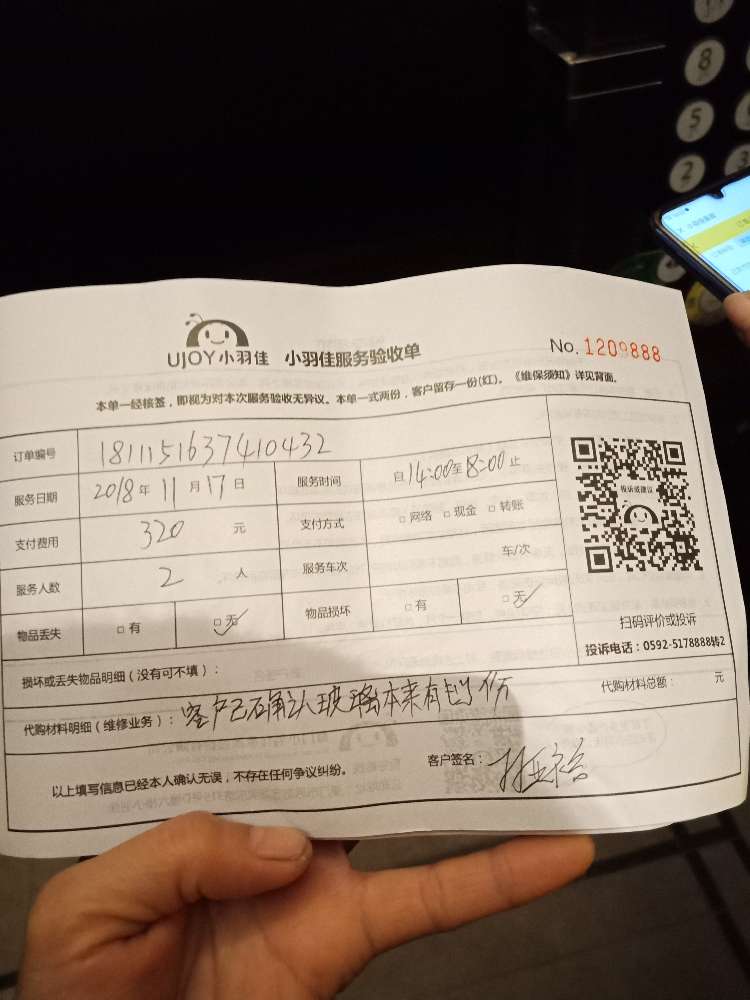 UJOY小羽佳 小羽佳服务验收单 No. 1209888
本单一经核签，即视为对本次服务验收无异议。本单一式两份，客户留存一份(红)。《维保须知》详见背面。
订单编号 181115163741043​2
服务日期 2018年 11月17日 服务时间 自14:00至8:00止
支付费用 320 元 支付方式 □网络 □现金 □转账
服务人数 2 人 服务车次 车/次
物品丢失 □有 □无✓ 物品损坏 □有 □无✓
投诉或建议
扫码评价或投诉
投诉电话：0592-5178888转2
损坏或丢失物品明细（没有可不填）：
代购材料明细（维修业务）： 客户已确认玻璃本来有划伤 代购材料总额： 元
以上填写信息已经本人确认无误，不存在任何争议纠纷。 客户签名：
11
8
5
2